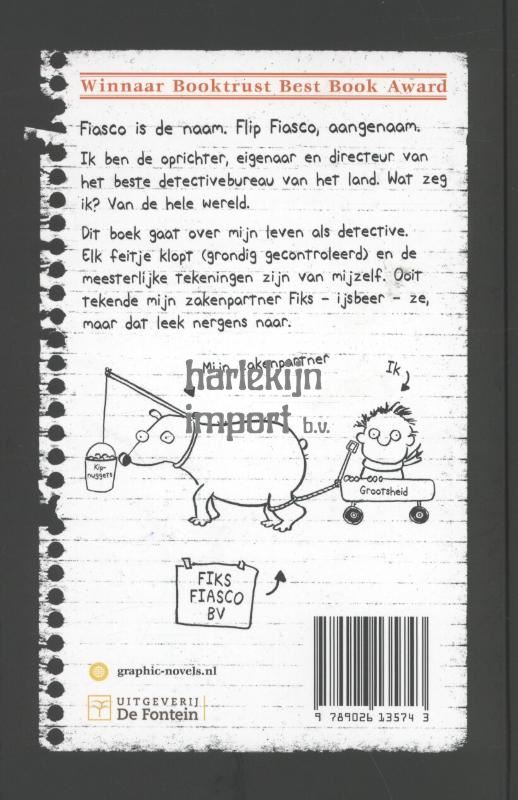 Winnaar Booktrust Best Book Award
Fiasco is de naam. Flip Fiasco, aangenaam.
Ik ben de oprichter, eigenaar en directeur van
het beste detectivebureau van het land. Wat zeg
ik? Van de hele wereld.
Dit boek gaat over mijn leven als detective.
Elk feitje klopt (grondig gecontroleerd) en de
meesterlijke tekeningen zijn van mijzelf. Ooit
tekende mijn zakenpartner Fiks – ijsbeer – ze,
maar dat leek nergens naar.
Mijn zakenpartner
Ik
harlekijn
import b.v.
Kip-
nuggets
Grootsheid
FIKS
FIASCO
BV
graphic-novels.nl
UITGEVERIJ
De Fontein
9 789026 135743